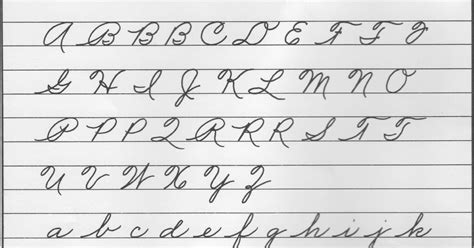 A B B B C D E F F F
G H I J K L M N O
P P P Q R R R S T T
U V W X Y Z
a b c d e f g h i j k